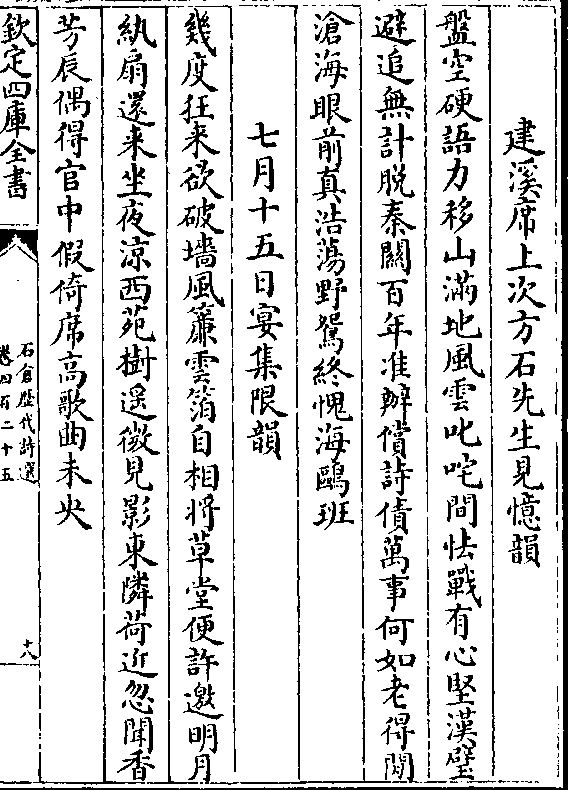 建溪席上次方石先生見憶韻
盤空硬語力移山滿地風雲叱咤間怯戰有心堅漢壁
避追無計脱秦關百年准辦償詩債萬事何如老得閒
滄海眼前真浩蕩野鴛終愧海鷗班
七月十五日宴集限韻
幾度狂来欲破墻風簾雲箔自相將草堂便許邀明月
紈扇還来坐夜凉西苑樹遥微見影東隣荷近忽聞香
芳辰偶得官中假倚席高歌曲未央
欽定四庫全書
石倉歷代詩選
卷四百二十五
十八